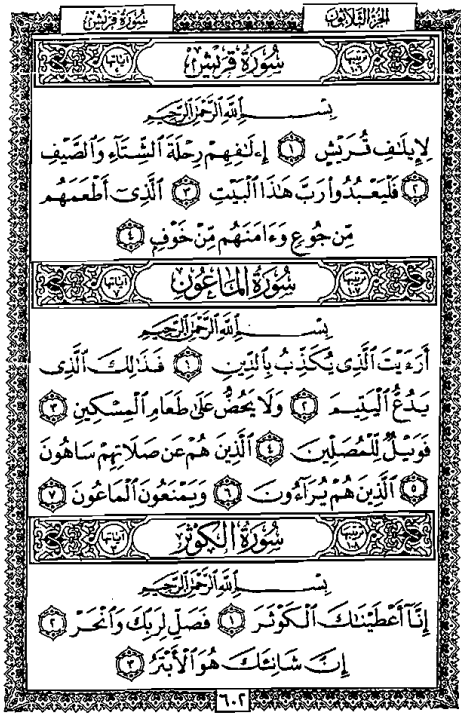 الجزء الثلاثون سورة قريش
ترتيبها ١٠٦ سُورَةُ قُرَيْشٍ آياتها ٤
بِسْمِ ٱللَّهِ ٱلرَّحْمَٰنِ ٱلرَّحِيمِ
لِإِيلَٰفِ قُرَيْشٍ ١ إِۦلَٰفِهِمْ رِحْلَةَ ٱلشِّتَآءِ وَٱلصَّيْفِ
٢ فَلْيَعْبُدُوا۟ رَبَّ هَٰذَا ٱلْبَيْتِ ٣ ٱلَّذِىٓ أَطْعَمَهُم
مِّن جُوعٍ وَءَامَنَهُم مِّنْ خَوْفٍۭ ٤
ترتيبها ١٠٧ سُورَةُ المَاعُونِ آياتها ٧
بِسْمِ ٱللَّهِ ٱلرَّحْمَٰنِ ٱلرَّحِيمِ
أَرَءَيْتَ ٱلَّذِى يُكَذِّبُ بِٱلدِّينِ ١ فَذَٰلِكَ ٱلَّذِى
يَدُعُّ ٱلْيَتِيمَ ٢ وَلَا يَحُضُّ عَلَىٰ طَعَامِ ٱلْمِسْكِينِ ٣
فَوَيْلٌ لِّلْمُصَلِّينَ ٤ ٱلَّذِينَ هُمْ عَن صَلَاتِهِمْ سَاهُونَ
٥ ٱلَّذِينَ هُمْ يُرَآءُونَ ٦ وَيَمْنَعُونَ ٱلْمَاعُونَ ٧
ترتيبها ١٠٨ سُورَةُ الكَوْثَرِ آياتها ٣
بِسْمِ ٱللَّهِ ٱلرَّحْمَٰنِ ٱلرَّحِيمِ
إِنَّآ أَعْطَيْنَٰكَ ٱلْكَوْثَرَ ١ فَصَلِّ لِرَبِّكَ وَٱنْحَرْ ٢
إِنَّ شَانِئَكَ هُوَ ٱلْأَبْتَرُ ٣
٦٠٢